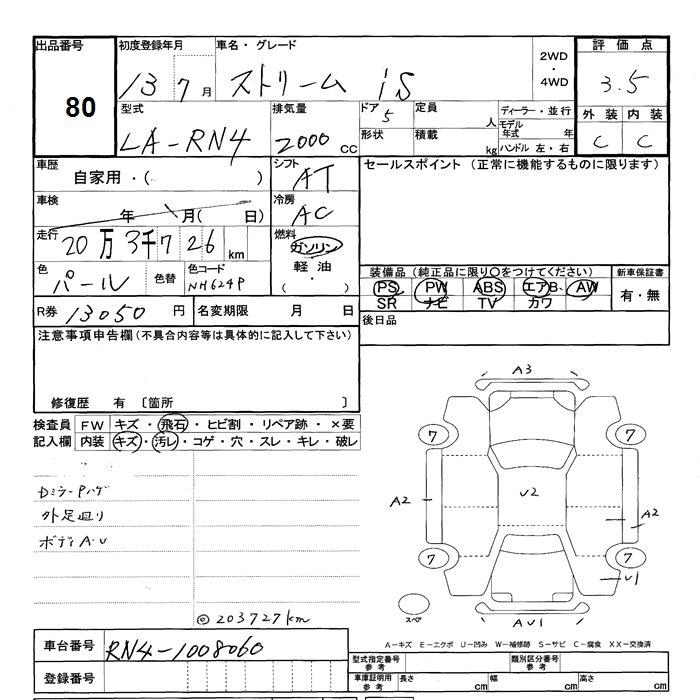 出品番号 初度登録年月 車名・グレード 2WD ・ 4WD 評価点
80 13 7月 ストリーム iS 3.5
型式 排気量 ドア 定員 ディーラー・並行 外装 内装
LA-RN4 2000 CC 5 人 モデル年式 年 C C
形状 積載 kg ハンドル 左・右
車歴 シフト セールスポイント (正常に機能するものに限ります)
自家用・( ) AT
車検 冷房
年 月( 日) AC
走行 燃料
20万3千726 km ガソリン
色 色替 色コード 軽油・
パール NH624P ( )
装備品 (純正品に限り○をつけてください) 新車保証書
PS PW ABS エアB. AW 有・無
SR ナビ TV カワ
R券 13050 円 名変期限 月 日
後日品
注意事項申告欄(不具合内容等は具体的に記入して下さい)
修復歴 有 〔箇所 〕
検査員 FW キズ・飛石・ヒビ割・リペア跡・×要
記入欄 内装 キズ・汚レ・コゲ・穴・スレ・キレ・破レ
DミラーPハゲ
外足廻り
ボディA・U
◎203727km
A3
7 7
A2 U2 A2
7 7
U1
スペア AU1
A-キズ E-エクボ U-凹み W-補修跡 S-サビ C-腐食 XX-交換済
車台番号 RN4-1008060
登録番号
型式指定番号 参考 類別区分番号 参考
車庫証明用 参考 長さ cm 幅 cm 高さ cm